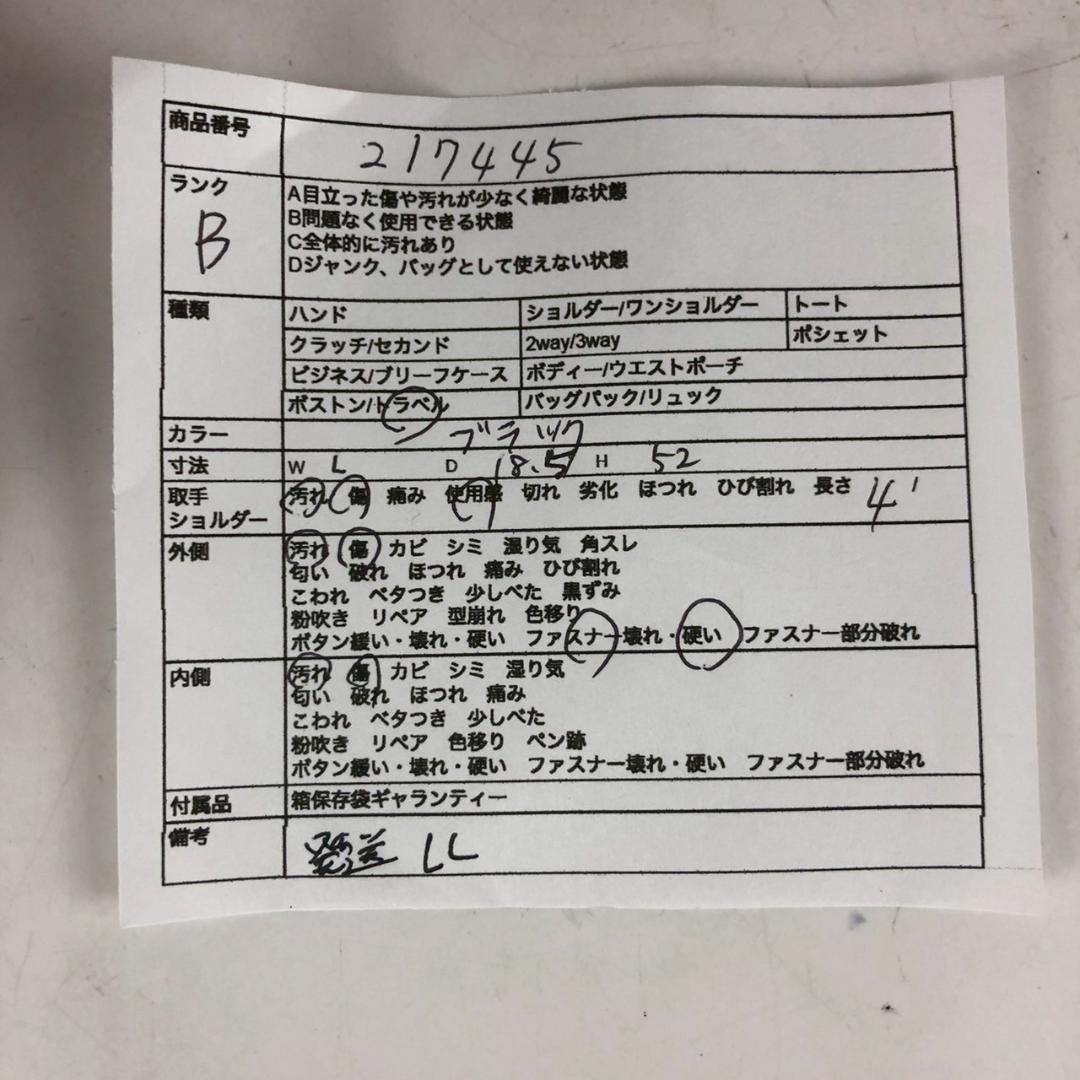 商品番号 217445
ランク A目立った傷や汚れが少なく綺麗な状態
B B問題なく使用できる状態
C全体的に汚れあり
Dジャンク、バッグとして使えない状態
種類 ハンド ショルダー/ワンショルダー トート
クラッチ/セカンド 2way/3way ポシェット
ビジネス/ブリーフケース ボディー/ウエストポーチ
ボストン/トラベル バッグパック/リュック
カラー ブラック
寸法 W L D 18.5 H 52
取手 汚れ 傷 痛み 使用感 切れ 劣化 ほつれ ひび割れ 長さ 4
ショルダー
外側 汚れ 傷 カビ シミ 湿り気 角スレ
匂い 破れ ほつれ 痛み ひび割れ
こわれ ベタつき 少しべた 黒ずみ
粉吹き リペア 型崩れ 色移り
ボタン緩い・壊れ・硬い ファスナー壊れ・硬い ファスナー部分破れ
内側 汚れ 傷 カビ シミ 湿り気
匂い 破れ ほつれ 痛み
こわれ ベタつき 少しべた
粉吹き リペア 色移り ペン跡
ボタン緩い・壊れ・硬い ファスナー壊れ・硬い ファスナー部分破れ
付属品 箱保存袋ギャランティー
備考 発送 LL